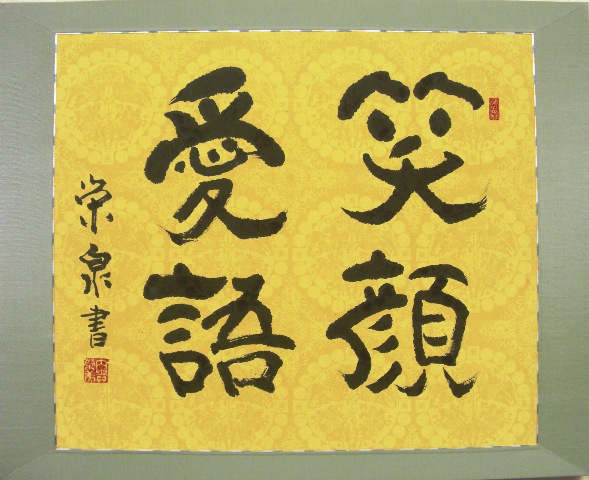 笑顔
愛語
栄泉書